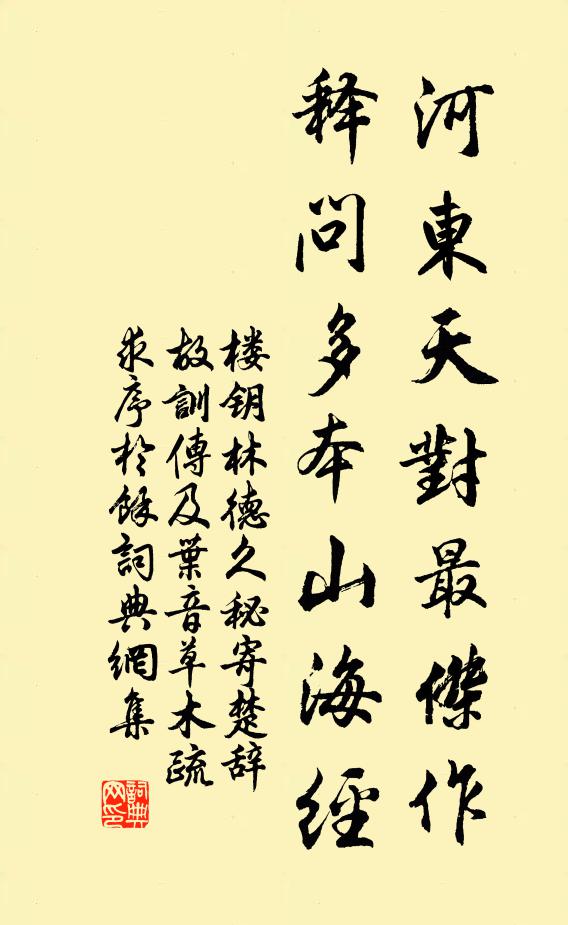 河東天對最傑作
释問多本山海經
楼钥林德久秘寄楚辞
故訓傳及葉音草木疏
求序於餘詞典網集
詞典網印